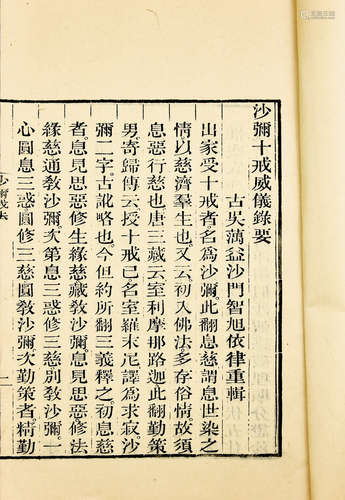 沙彌十戒威儀錄要
古吳蕅益沙門智旭依律重輯
出家受十戒者名爲沙彌此翻息慈謂息世染之
情以慈濟羣生也又云初入佛法多存俗情故須
息惡行慈也唐三藏云室利摩那路迦此翻勤策
男寄歸傳云授十戒已名室羅末尼譯爲求寂沙
彌二字古訛略也今但約所翻三義釋之初息慈
者息見思惡修生緣慈藏教沙彌息見思惡修法
緣慈通教沙彌次第息三惑修三慈別教沙彌一
心圓息三惑圓修三慈圓教沙彌次勤策者精勤
一